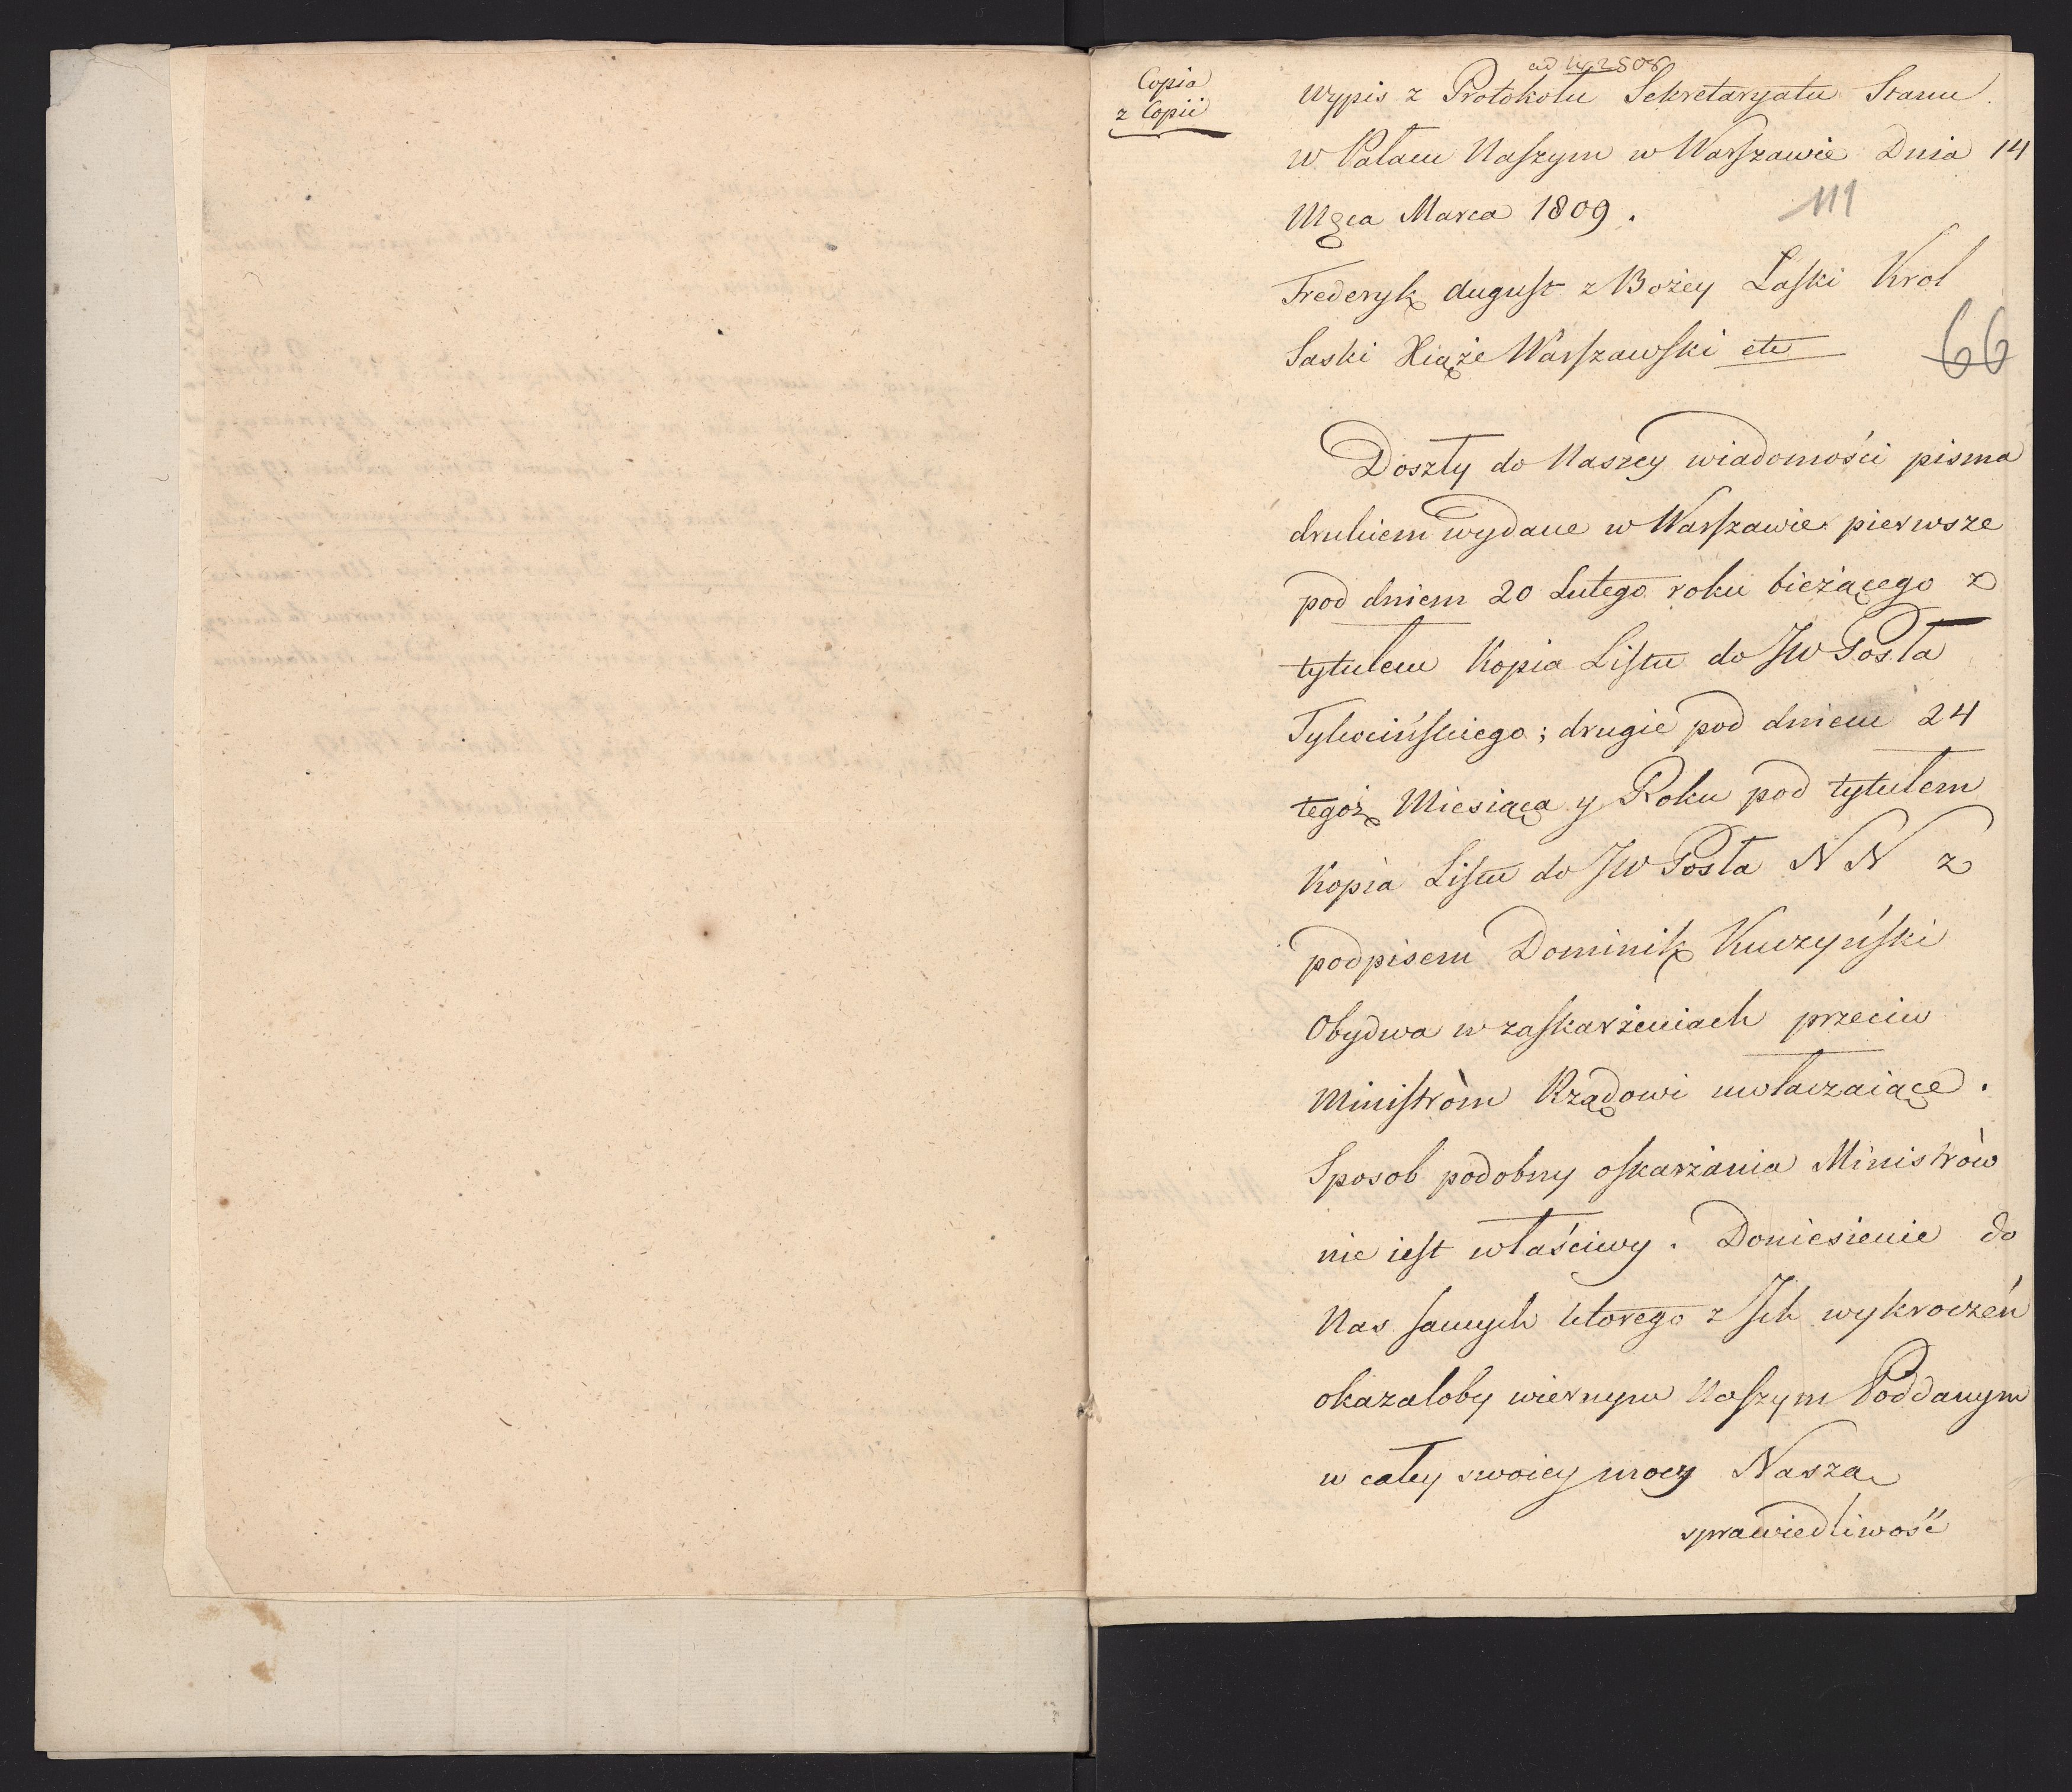 Copia
z Copii
ad Nr 2808
Wypis z Protokołu Sekretaryatu Stanu
w Pałacu Naszym w Warszawie Dnia 14
Mȩca Marca 1809.
111
Frederyk august z Bożey Łaski Krol
Saski Xiąże Warszawski etc
66
Doszły do Naszey wiadomości pisma
drukiem wydane w Warszawie pierwsze
pod dniem 20 Lutego roku bieżącego z
tytułem Kopia Listu do JW Posła
Tykocińskiego; drugie pod dniem 24
tegoż Miesiąca y Roku pod tytułem
Kopia Listu do JW Posła N N z
podpisem Dominik Kuczyński
Obydwa w zaskarżeniach przeciw
Ministròm Rządowi uwłaczaiące.
Sposob podobny oskarżania Ministròw
nie iest właściwy. Doniesienie do
Nas samych ktorego z Ich wykroczéń
okazałoby wiernym Naszym Poddanym
w całey swoiey mocy Naszą
sprawiedliwość